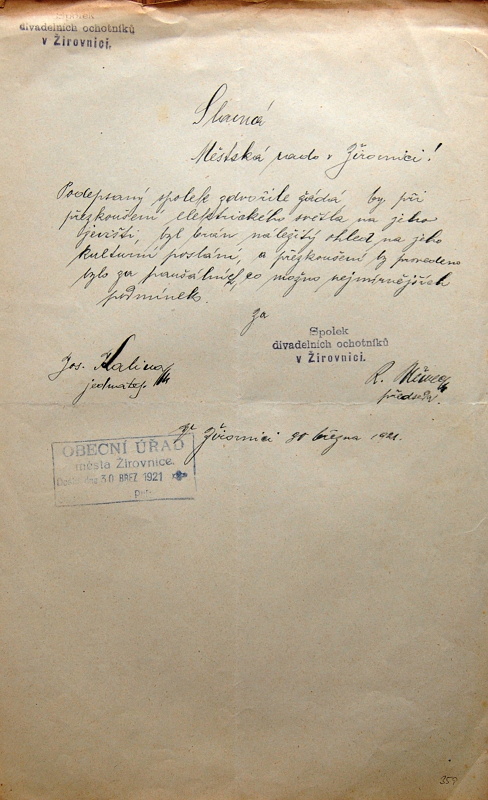 Spolek
divadelních ochotníků
v Žirovnici.
Slavná
Městská rado v Žirovnici!
Podepsaný spolek zdvořile žádá by, při
přezkoušení elektrického světla na jeho
jevišti, byl brán náležitý ohled na jeho
kulturní poslání, a přezkoušení by provedeno
bylo za paušálních, co možno nejmírnějších
podmínek.
Za
Spolek
divadelních ochotníků
v Žirovnici.
Jos. Kalina
jednatel
R. Němec
předseda.
V Žirovnici 30 března 1921.
OBECNÍ ÚŘAD
města Žirovnice.
Došlo dne 30 BŘEZ 1921
359